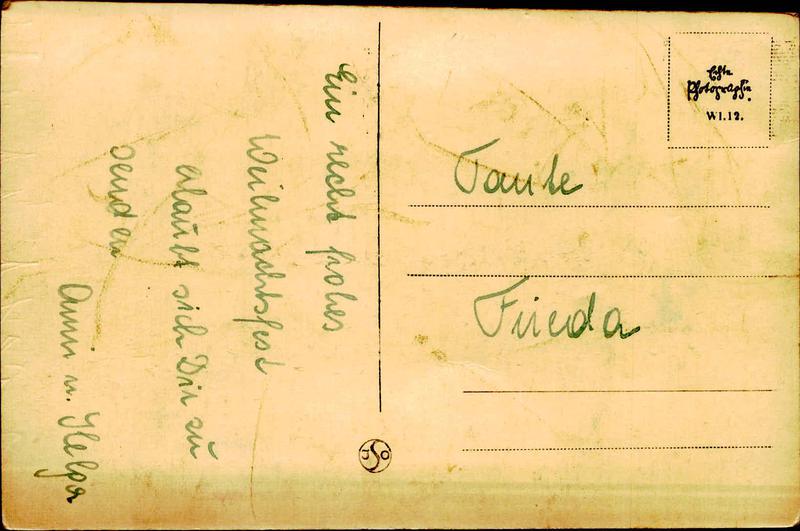 Ein recht frohes
Weihnachtsfest
erlaubt sich Dir zu
senden
Anni u. Helga
Tante
Frieda
Echte
Photographie
W1.12.
JSO